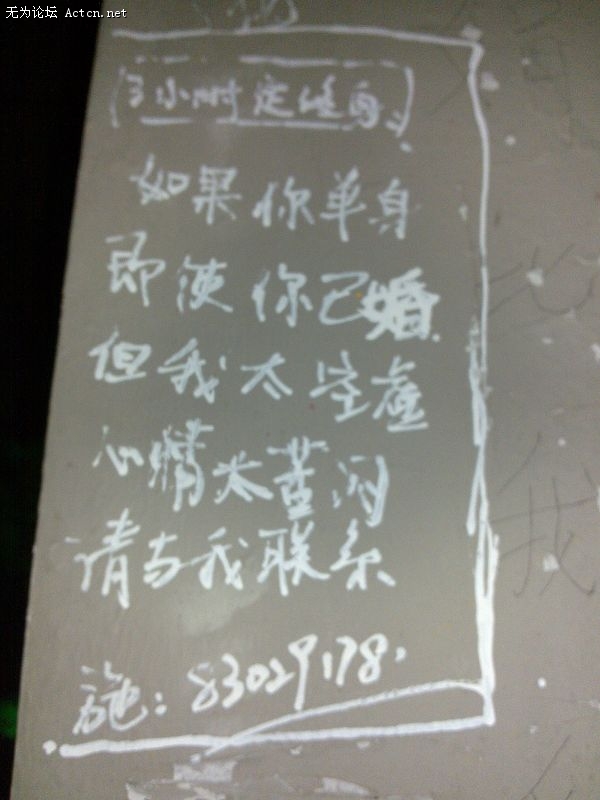 无为论坛 Actcn.net
3小时定终身
如果你单身
即使你已婚
但我太空虚
心情太苦闷
请与我联系
施：83029178.
我